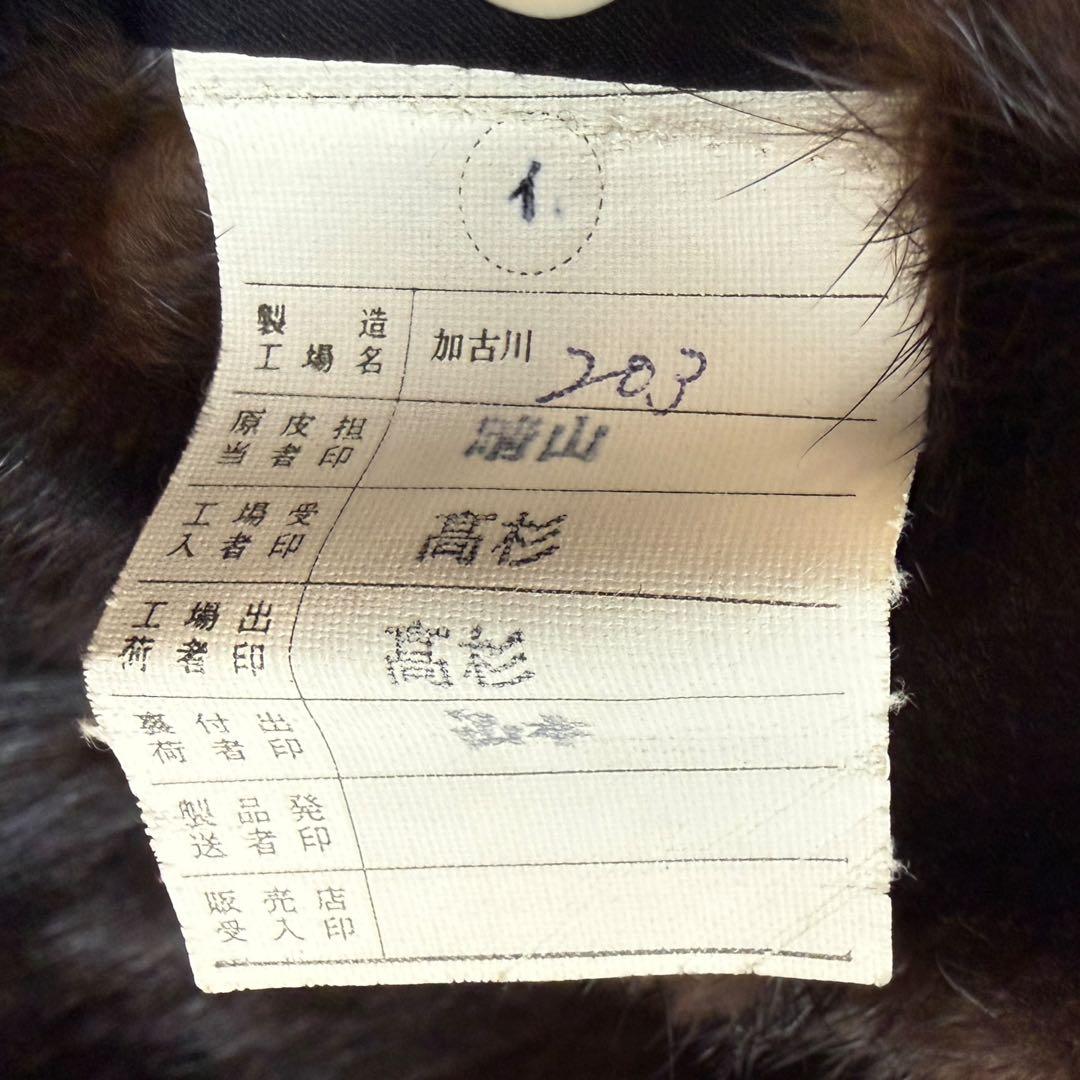 イ.
製造
工場名
加古川 203
原皮担
当者印
工場受
入者印
高杉
工場出
荷者印
高杉
裏付出
荷者印
製品発
送者印
販売店
受入印